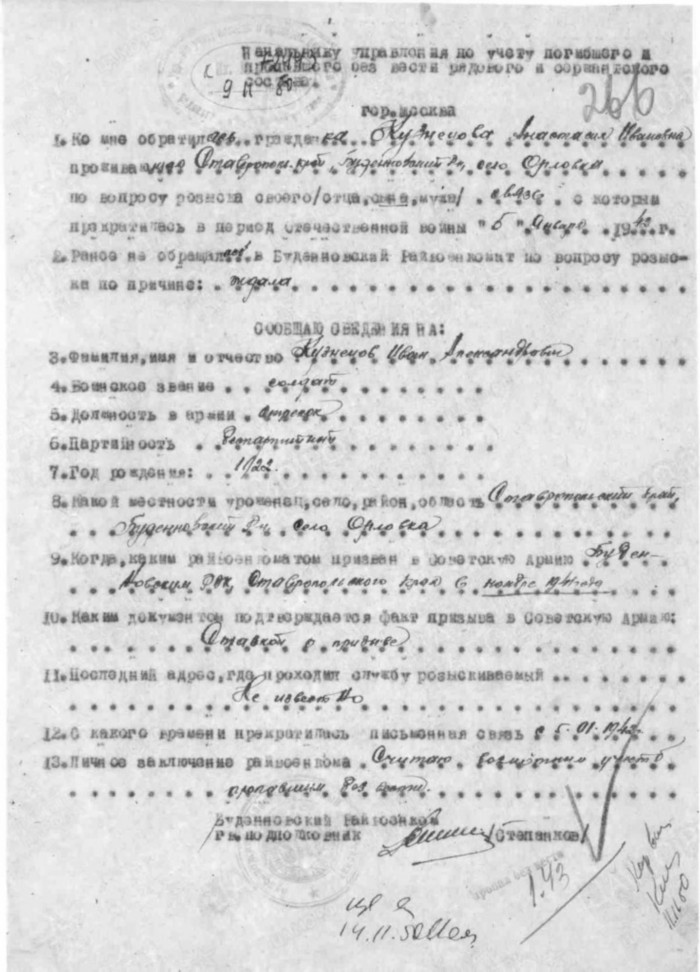 Начальнику управления по учету погибшего и
пропавшего без вести рядового и сержантского
состава.
9 II 50
266
гор.Москва
1. Ко мне обратилась гражданка Кузнецова Анастасия Ивановна
проживающая Ставропол. край, Буденновский р-н, село Орловка
по вопросу розыска своего/отца, сына, мужа/ связь с которым
прекратилась в период отечественной войны "5" января 1943 г.
2. Ранее не обращалась в Буденновский Райвоенкомат по вопросу розыс-
ка по причине: ждала
СООБЩАЮ СВЕДЕНИЯ НА:
3. Фамилия, имя и отчество Кузнецов Иван
4. Воинское звание солдат
5. Должность в армии стрелок
6. Партийность беспартийный
7. Год рождения: 1922.
8. Какой местности уроженец, село, район, область Ставропольский край,
Буденновский р-н, село Орловка
9. Когда, каким райвоенкоматом призван в Советскую Армию Буден-
новским РВК, Ставропольского края в
10. Каким документом подтверждается факт призыва в Советскую Армию:
о призыве
11. Последний адрес, где проходил службу розыскиваемый
Не известно
12. С какого времени прекратилась письменная связь с 5.01.1943
13. Личное заключение райвоенкома Считаю возможным учесть
пропавшим без вести.
Буденновский Райвоенком
Гв. подполковник /Степанков/
пропал без вести
1.43
14.11.50